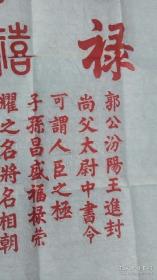 禄
禧
郭公汾陽王進封
尚父太尉中書令
可謂人臣之極
子孫昌盛福祿榮
耀之名將名相朝